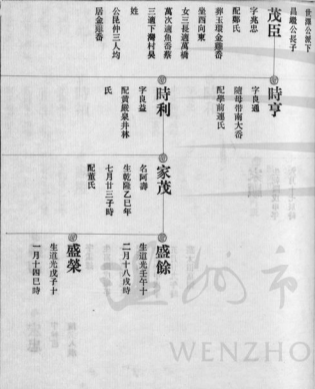 昌繼公長子
茂臣
字兆忠
配鄭氏
葬玉環金雞岙
坐西向東
女三長適萬橋
萬次適魚岙蔡
三適下灣村吳
姓
公昆仲三人均
居金雞岙
時亨
字良通
隨母帶南大岙
配學前連氏
時利
字良益
配黃嚴泉井林
氏
家茂
名阿壽
生乾隆乙巳年
七月廿三子時
配董氏
盛餘
生道光壬午十
二月十八戌時
盛榮
生道光戊子十
一月十四巳時
温州市
WENZHO